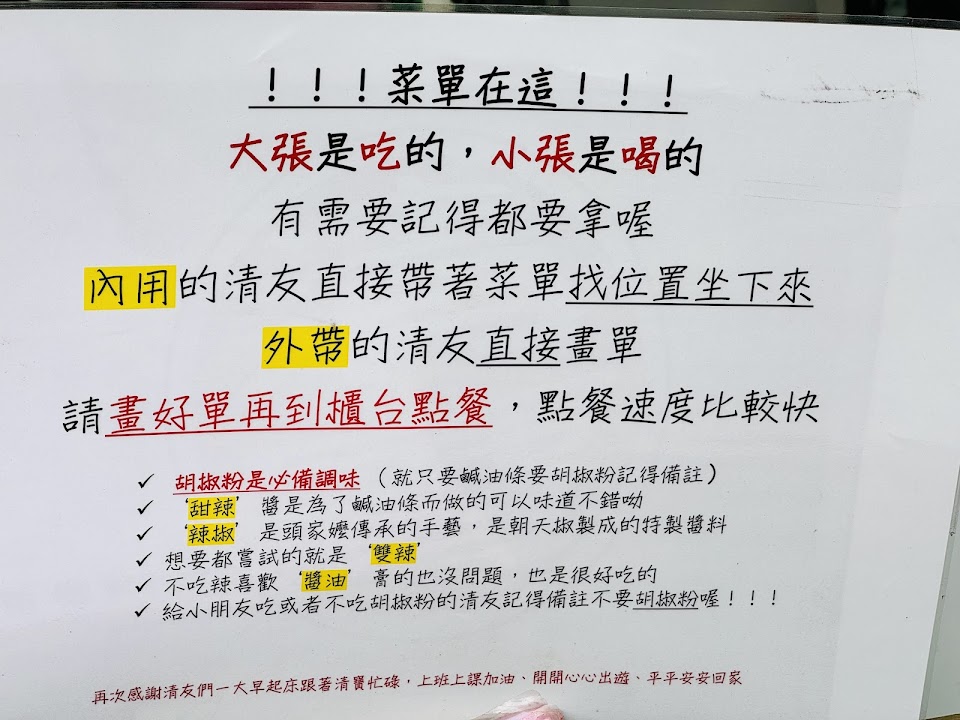 ！！！菜單在這！！！
大張是吃的，小張是喝的
有需要記得都要拿喔
內用的清友直接帶著菜單找位置坐下來
外帶的清友直接畫單
請畫好單再到櫃台點餐，點餐速度比較快
✓ 胡椒粉是必備調味（就只要鹹油條要胡椒粉記得備註）
✓ ‘甜辣’醬是為了鹹油條而做的可以味道不錯呦
✓ ‘辣椒’是頭家嬤傳承的手藝，是朝天椒製成的特製醬料
✓ 想要都嘗試的就是‘雙辣’
✓ 不吃辣喜歡‘醬油’膏的也沒問題，也是很好吃的
✓ 給小朋友吃或者不吃胡椒粉的清友記得備註不要胡椒粉喔！！！
再次感謝清友們一大早起床跟著清饕忙碌，上班上課加油、開開心心出遊、平平安安回家